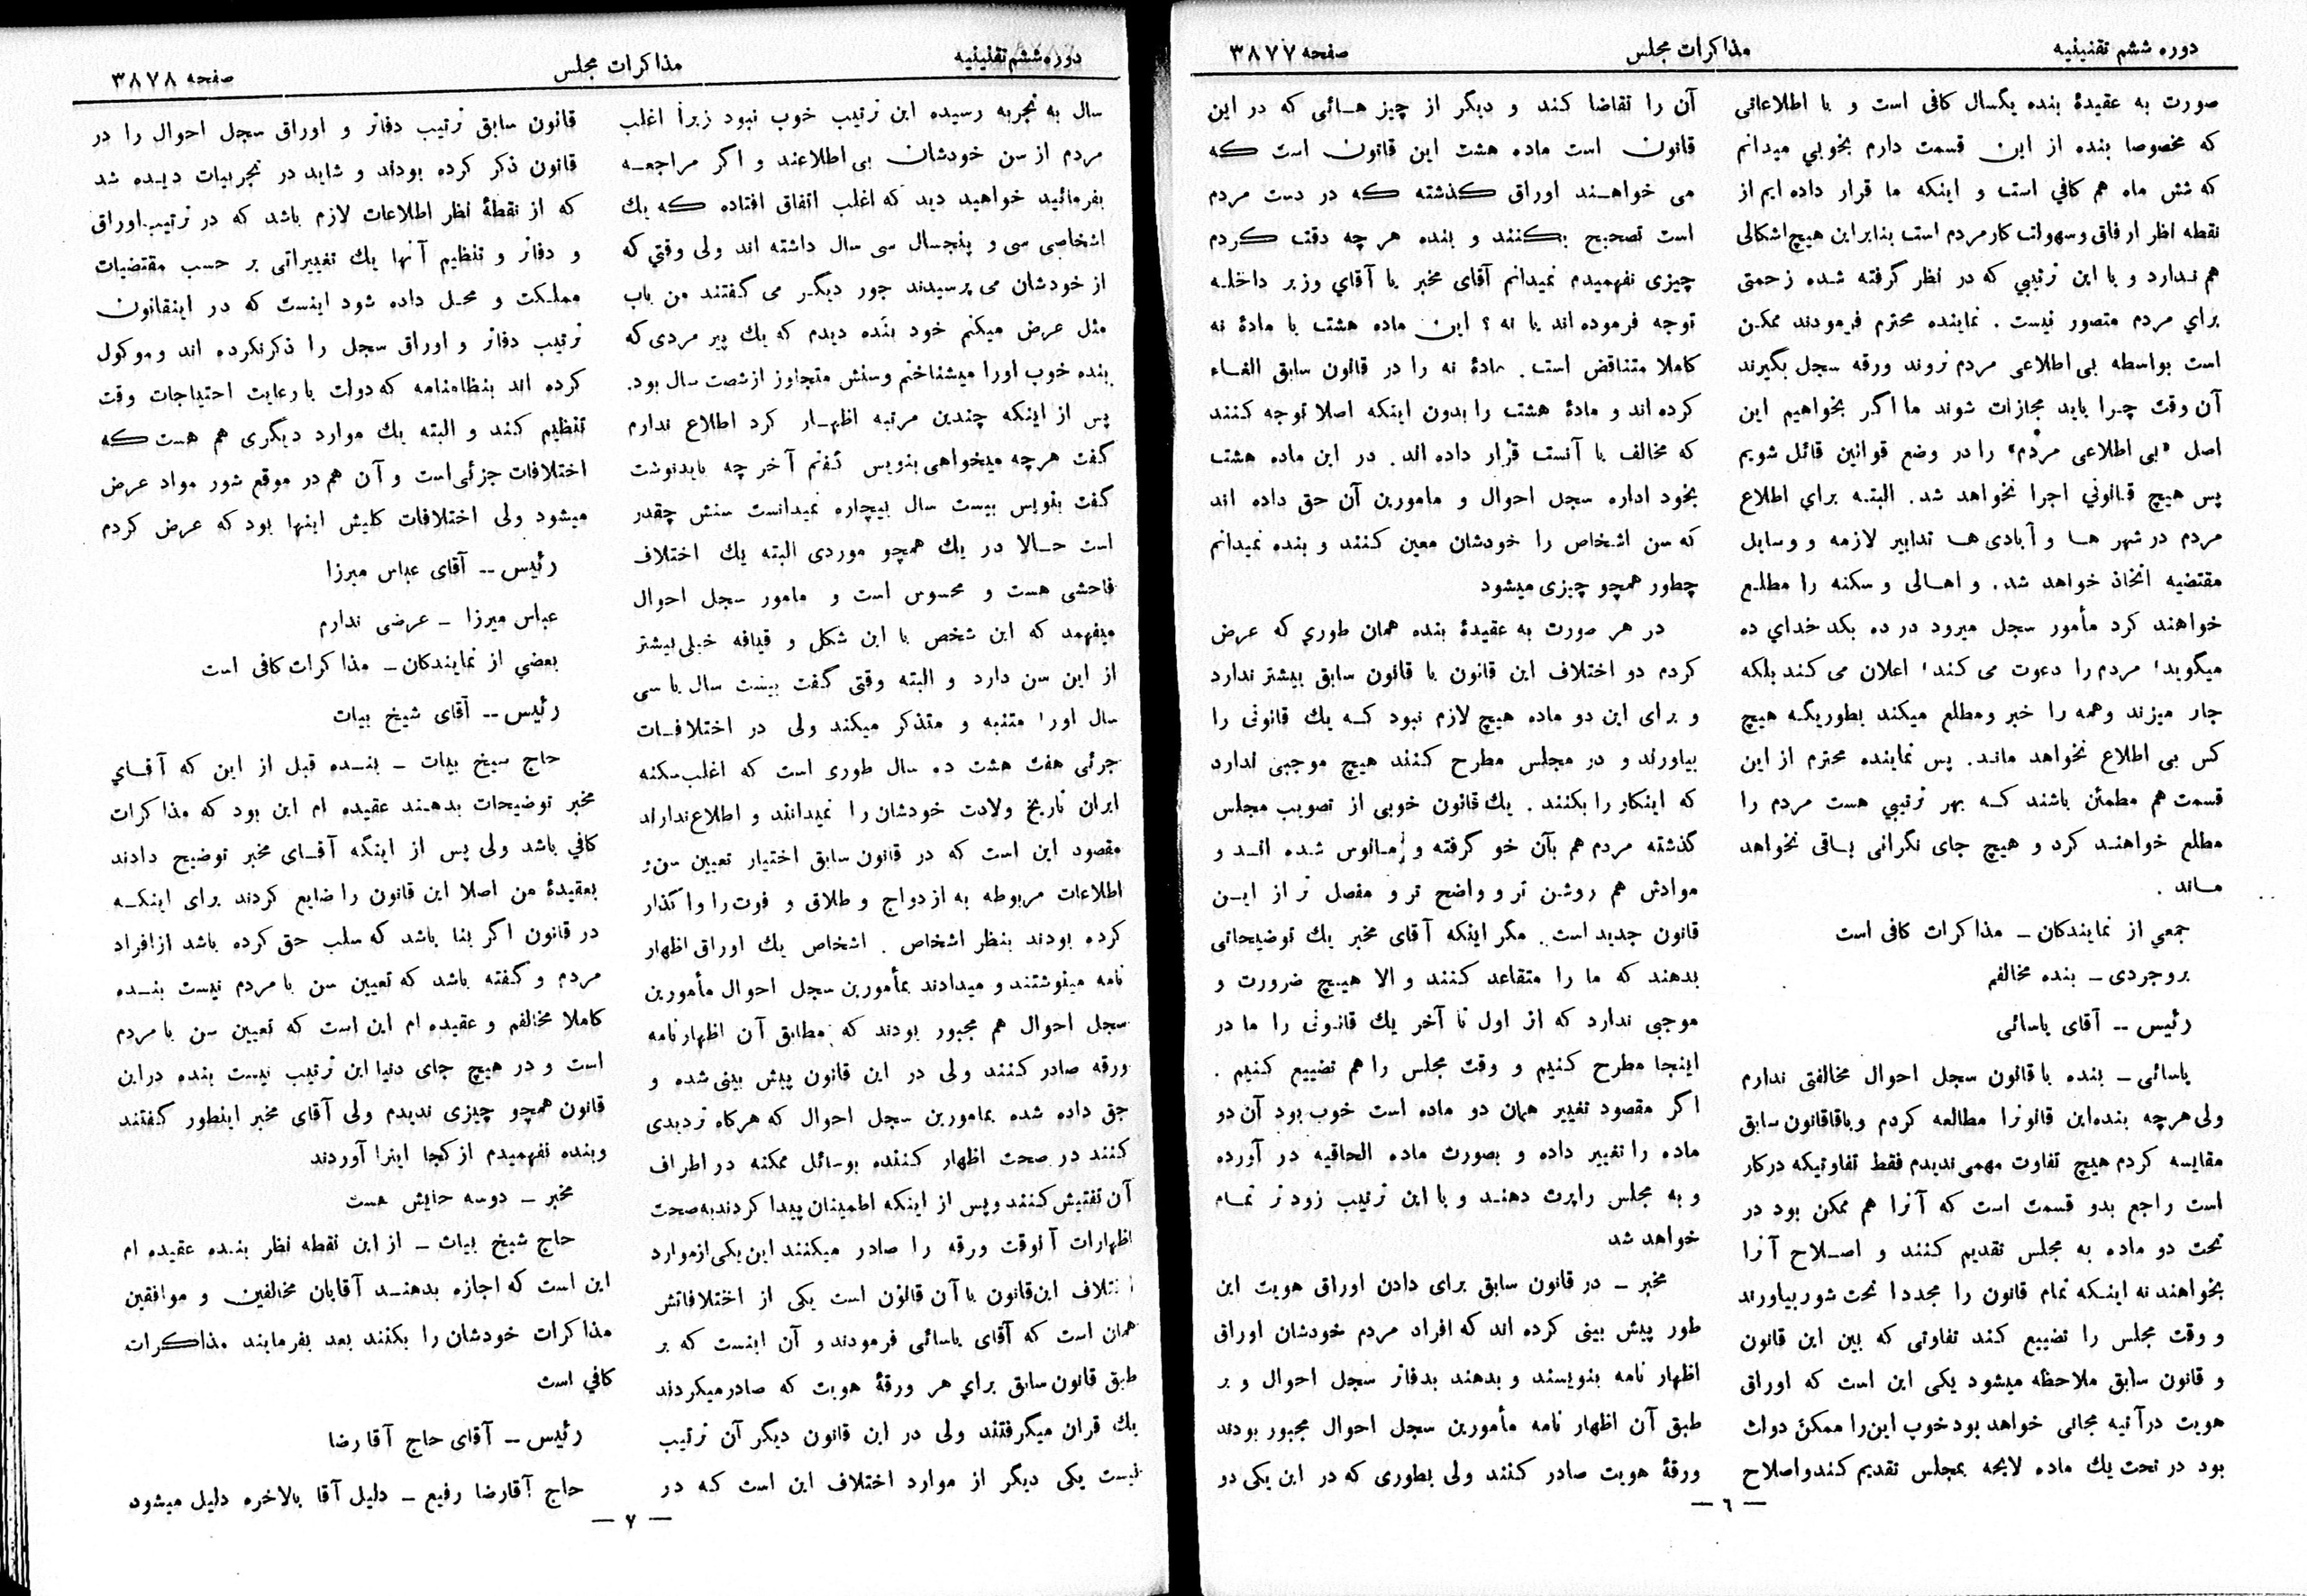 دوره ششم تقنینیه
مذاکرات مجلس
صفحه ۳۸۷۷
صورت به عقیدهٔ بنده یکسال کافی است و با اطلاعاتی
که مخصوصا بنده از این قسمت دارم بخوبی میدانم
که شش ماه هم کافی است و اینکه ما قرار داده ایم از
نقطه نظر ارفاق و سهولت کار مردم است بنابراین هیچ اشکالی
هم ندارد و با این ترتیبی که در نظر گرفته شده زحمتی
برای مردم متصور نیست . نماینده محترم فرمودند ممکن
است بواسطه بی اطلاعی مردم نروند ورقه سجل بگیرند
آن وقت چرا باید مجازات شوند ما اگر بخواهیم این
اصل «بی اطلاعی مردم» را در وضع قوانین قائل شویم
پس هیچ قانونی اجرا نخواهد شد. البته برای اطلاع
مردم در شهر ها و آبادی ها تدابیر لازمه و وسایل
مقتضیه اتخاذ خواهد شد. و اهالی و سکنه را مطلع
خواهند کرد مأمور سجل میرود در ده بکد خدای ده
میگوید، مردم را دعوت می کند، اعلان می کند بلکه
جار میزند و همه را خبر و مطلع میکند بطوریکه هیچ
کس بی اطلاع نخواهد ماند. پس نماینده محترم از این
قسمت هم مطمئن باشند که بهر ترتیبی هست مردم را
مطلع خواهند کرد و هیچ جای نگرانی باقی نخواهد
ماند .
جمعی از نمایندکان ـ مذاکرات کافی است
بروجردی ـ بنده مخالفم
رئیس -- آقای یاسائی
یاسائی ـ بنده با قانون سجل احوال مخالفتی ندارم
ولی هرچه بنده این قانونرا مطالعه کردم و باقاقانون سابق
مقایسه کردم هیچ تفاوت مهمی ندیدم فقط تفاوتیکه درکار
است راجع بدو قسمت است که آنرا هم ممکن بود در
تحت دو ماده به مجلس تقدیم کنند و اصلاح آنرا
بخواهند نه اینکه تمام قانون را مجددا تحت شور بیاورند
و وقت مجلس را تضییع کنند تفاوتی که بین این قانون
و قانون سابق ملاحظه میشود یکی این است که اوراق
هویت درآتیه مجانی خواهد بود خوب این را ممکن دولت
بود در تحت یك ماده لایحه بمجلس تقدیم کند و اصلاح
آن را تقاضا کند و دیگر از چیز هائی که در این
قانون است ماده هشت این قانون است که
می خواهند اوراق گذشته که در دست مردم
است تصحیح بکنند و بنده هر چه دقت کردم
چیزی نفهمیدم نمیدانم آقای مخبر یا آقای وزیر داخله
توجه فرموده اند یا نه ؟ این ماده هشت با مادهٔ نه
کاملا متناقض است. مادهٔ نه را در قانون سابق الغاء
کرده اند و مادهٔ هشت را بدون اینکه اصلا توجه کنند
که مخالف با آنست قرار داده اند. در این ماده هشت
بخود اداره سجل احوال و مامورین آن حق داده اند
که سن اشخاص را خودشان معین کنند و بنده نمیدانم
چطور همچو چیزی میشود
در هر صورت به عقیدهٔ بنده همان طوری که عرض
کردم دو اختلاف این قانون با قانون سابق بیشتر ندارد
و برای این دو ماده هیچ لازم نبود که یك قانونی را
بیاورند و در مجلس مطرح کنند هیچ موجبی ندارد
که اینکار را بکنند . یك قانون خوبی از تصویب مجلس
گذشته مردم هم بآن خو گرفته و مانوس شده اند و
موادش هم روشن تر و واضح تر و مفصل تر از این
قانون جدید است. مگر اینکه آقای مخبر یك توضیحاتی
بدهند که ما را متقاعد کنند و الا هیچ ضرورت و
موجبی ندارد که از اول تا آخر یك قانونی را ما در
اینجا مطرح کنیم و وقت مجلس را هم تضییع کنیم .
اگر مقصود تغییر همان دو ماده است خوب بود آن دو
ماده را تغییر داده و بصورت ماده الحاقیه در آورده
و به مجلس راپرت دهند و با این ترتیب زودتر تمام
خواهد شد
مخبر ـ در قانون سابق برای دادن اوراق هویت این
طور پیش بینی کرده اند که افراد مردم خودشان اوراق
اظهار نامه بنویسند و بدهند بدفاتر سجل احوال و بر
طبق آن اظهار نامه مأمورین سجل احوال مجبور بودند
ورقهٔ هویت صادر کنند ولی بطوری که در این یکی دو
— ٦ —
دوره ششم تقنینیه
مذاکرات مجلس
صفحه ۳۸۷۸
سال به تجربه رسیده این ترتیب خوب نبود زیرا اغلب
مردم از سن خودشان بی اطلاعند و اگر مراجعه
بفرمائید خواهید دید که اغلب اتفاق افتاده که یك
اشخاصی سی و پنجسال سی سال داشته اند ولی وقتی که
از خودشان می پرسیدند جور دیگر می گفتند من باب
مثل عرض میکنم خود بنده دیدم که یك پیر مردی که
بنده خوب اورا میشناختم و سنش متجاوز از شصت سال بود.
پس از اینکه چندین مرتبه اظهار کرد اطلاع ندارم
گفت هرچه میخواهی بنویس گفتم آخر چه باید نوشت
گفت بنویس بیست سال بیچاره نمیدانست سنش چقدر
است حالا در یك همچو موردی البته یك اختلاف
فاحشی هست و محسوس است و مامور سجل احوال
میفهمد که این شخص با این شکل و قیافه خیلی بیشتر
از این سن دارد و البته وقتی گفت بیست سال یا سی
سال اورا متنبه و متذکر میکند ولی در اختلافات
جزئی هفت هشت ده سال طوری است که اغلب سکنه
ایران تاریخ ولادت خودشان را نمیدانند و اطلاع ندارند
مقصود این است که در قانون سابق اختیار تعیین سن و
اطلاعات مربوطه به ازدواج و طلاق و فوت را واگذار
کرده بودند بنظر اشخاص . اشخاص یك اوراق اظهار
نامه مینوشتند و میدادند بمأمورین سجل احوال مأمورین
سجل احوال هم مجبور بودند که مطابق آن اظهار نامه
ورقه صادر کنند ولی در این قانون پیش بینی شده و
حق داده شده بمامورین سجل احوال که هرکاه تردیدی
کنند در صحت اظهار کننده بوسائل ممکنه در اطراف
آن تفتیش کنند و پس از اینکه اطمینان پیدا کردند به صحت
اظهارات آنوقت ورقه را صادر میکنند این یکی از موارد
اختلاف این قانون با آن قانون است یکی از اختلافاتش
همان است که آقای یاسائی فرمودند و آن اینست که بر
طبق قانون سابق برای هر ورقهٔ هویت که صادر میکردند
یك قران میگرفتند ولی در این قانون دیگر آن ترتیب
نیست یکی دیگر از موارد اختلاف این است که در
قانون سابق ترتیب دفاتر و اوراق سجل احوال را در
قانون ذکر کرده بودند و شاید در تجربیات دیده شد
که از نقطهٔ نظر اطلاعات لازم باشد که در ترتیب اوراق
و دفاتر و تنظیم آنها یك تغییراتی بر حسب مقتضیات
مملکت و محل داده شود اینست که در اینقانون
ترتیب دفاتر و اوراق سجل را ذکر نکرده اند و موکول
کرده اند بنظامنامه که دولت با رعایت احتیاجات وقت
تنظیم کند و البته یك موارد دیگری هم هست که
اختلافات جزئی است و آن هم در موقع شور مواد عرض
میشود ولی اختلافات کلیش اینها بود که عرض کردم
رئیس -- آقای عباس میرزا
عباس میرزا ـ عرضی ندارم
بعضی از نمایندکان ـ مذاکرات کافی است
رئیس -- آقای شیخ بیات
حاج شیخ بیات ـ بنده قبل از این که آقای
مخبر توضیحات بدهند عقیده ام این بود که مذاکرات
کافی باشد ولی پس از اینکه آقای مخبر توضیح دادند
بعقیدهٔ من اصلا این قانون را ضایع کردند برای اینکه
در قانون اگر بنا باشد که سلب حق کرده باشد از افراد
مردم و گفته باشد که تعیین سن با مردم نیست بنده
کاملا مخالفم و عقیده ام این است که تعیین سن با مردم
است و در هیچ جای دنیا این ترتیب نیست بنده در این
قانون همچو چیزی ندیدم ولی آقای مخبر اینطور گفتند
و بنده نفهمیدم از کجا اینرا آوردند
مخبر ـ دوسه جایش هست
حاج شیخ بیات ـ از این نقطه نظر بنده عقیده ام
این است که اجازه بدهند آقایان مخالفین و موافقین
مذاکرات خودشان را بکنند بعد بفرمایند مذاکرات
کافی است
رئیس ـ آقای حاج آقا رضا
حاج آقارضا رفیع ـ دلیل آقا بالاخره دلیل میشود
— ۷ —